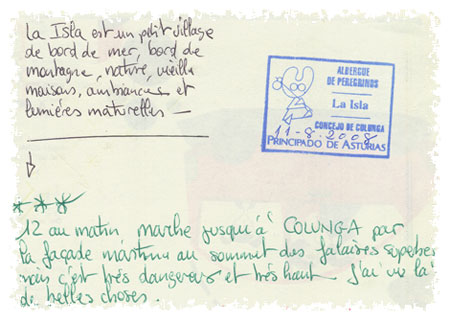 La Isla est un petit village
de bord de mer, bord de
montagne, nature, vieilles
maisons, ambiances et
lumières naturelles —
ALBERGUE
DE PEREGRINOS
La Isla
CONCEJO DE COLUNGA
11-8-2008
PRINCIPADO DE ASTURIAS
12 au matin marche jusqu'à COLUNGA par
la façade au sommet des falaises superbes
mais c'est très dangereux et très haut. J'ai vu là
de belles choses.